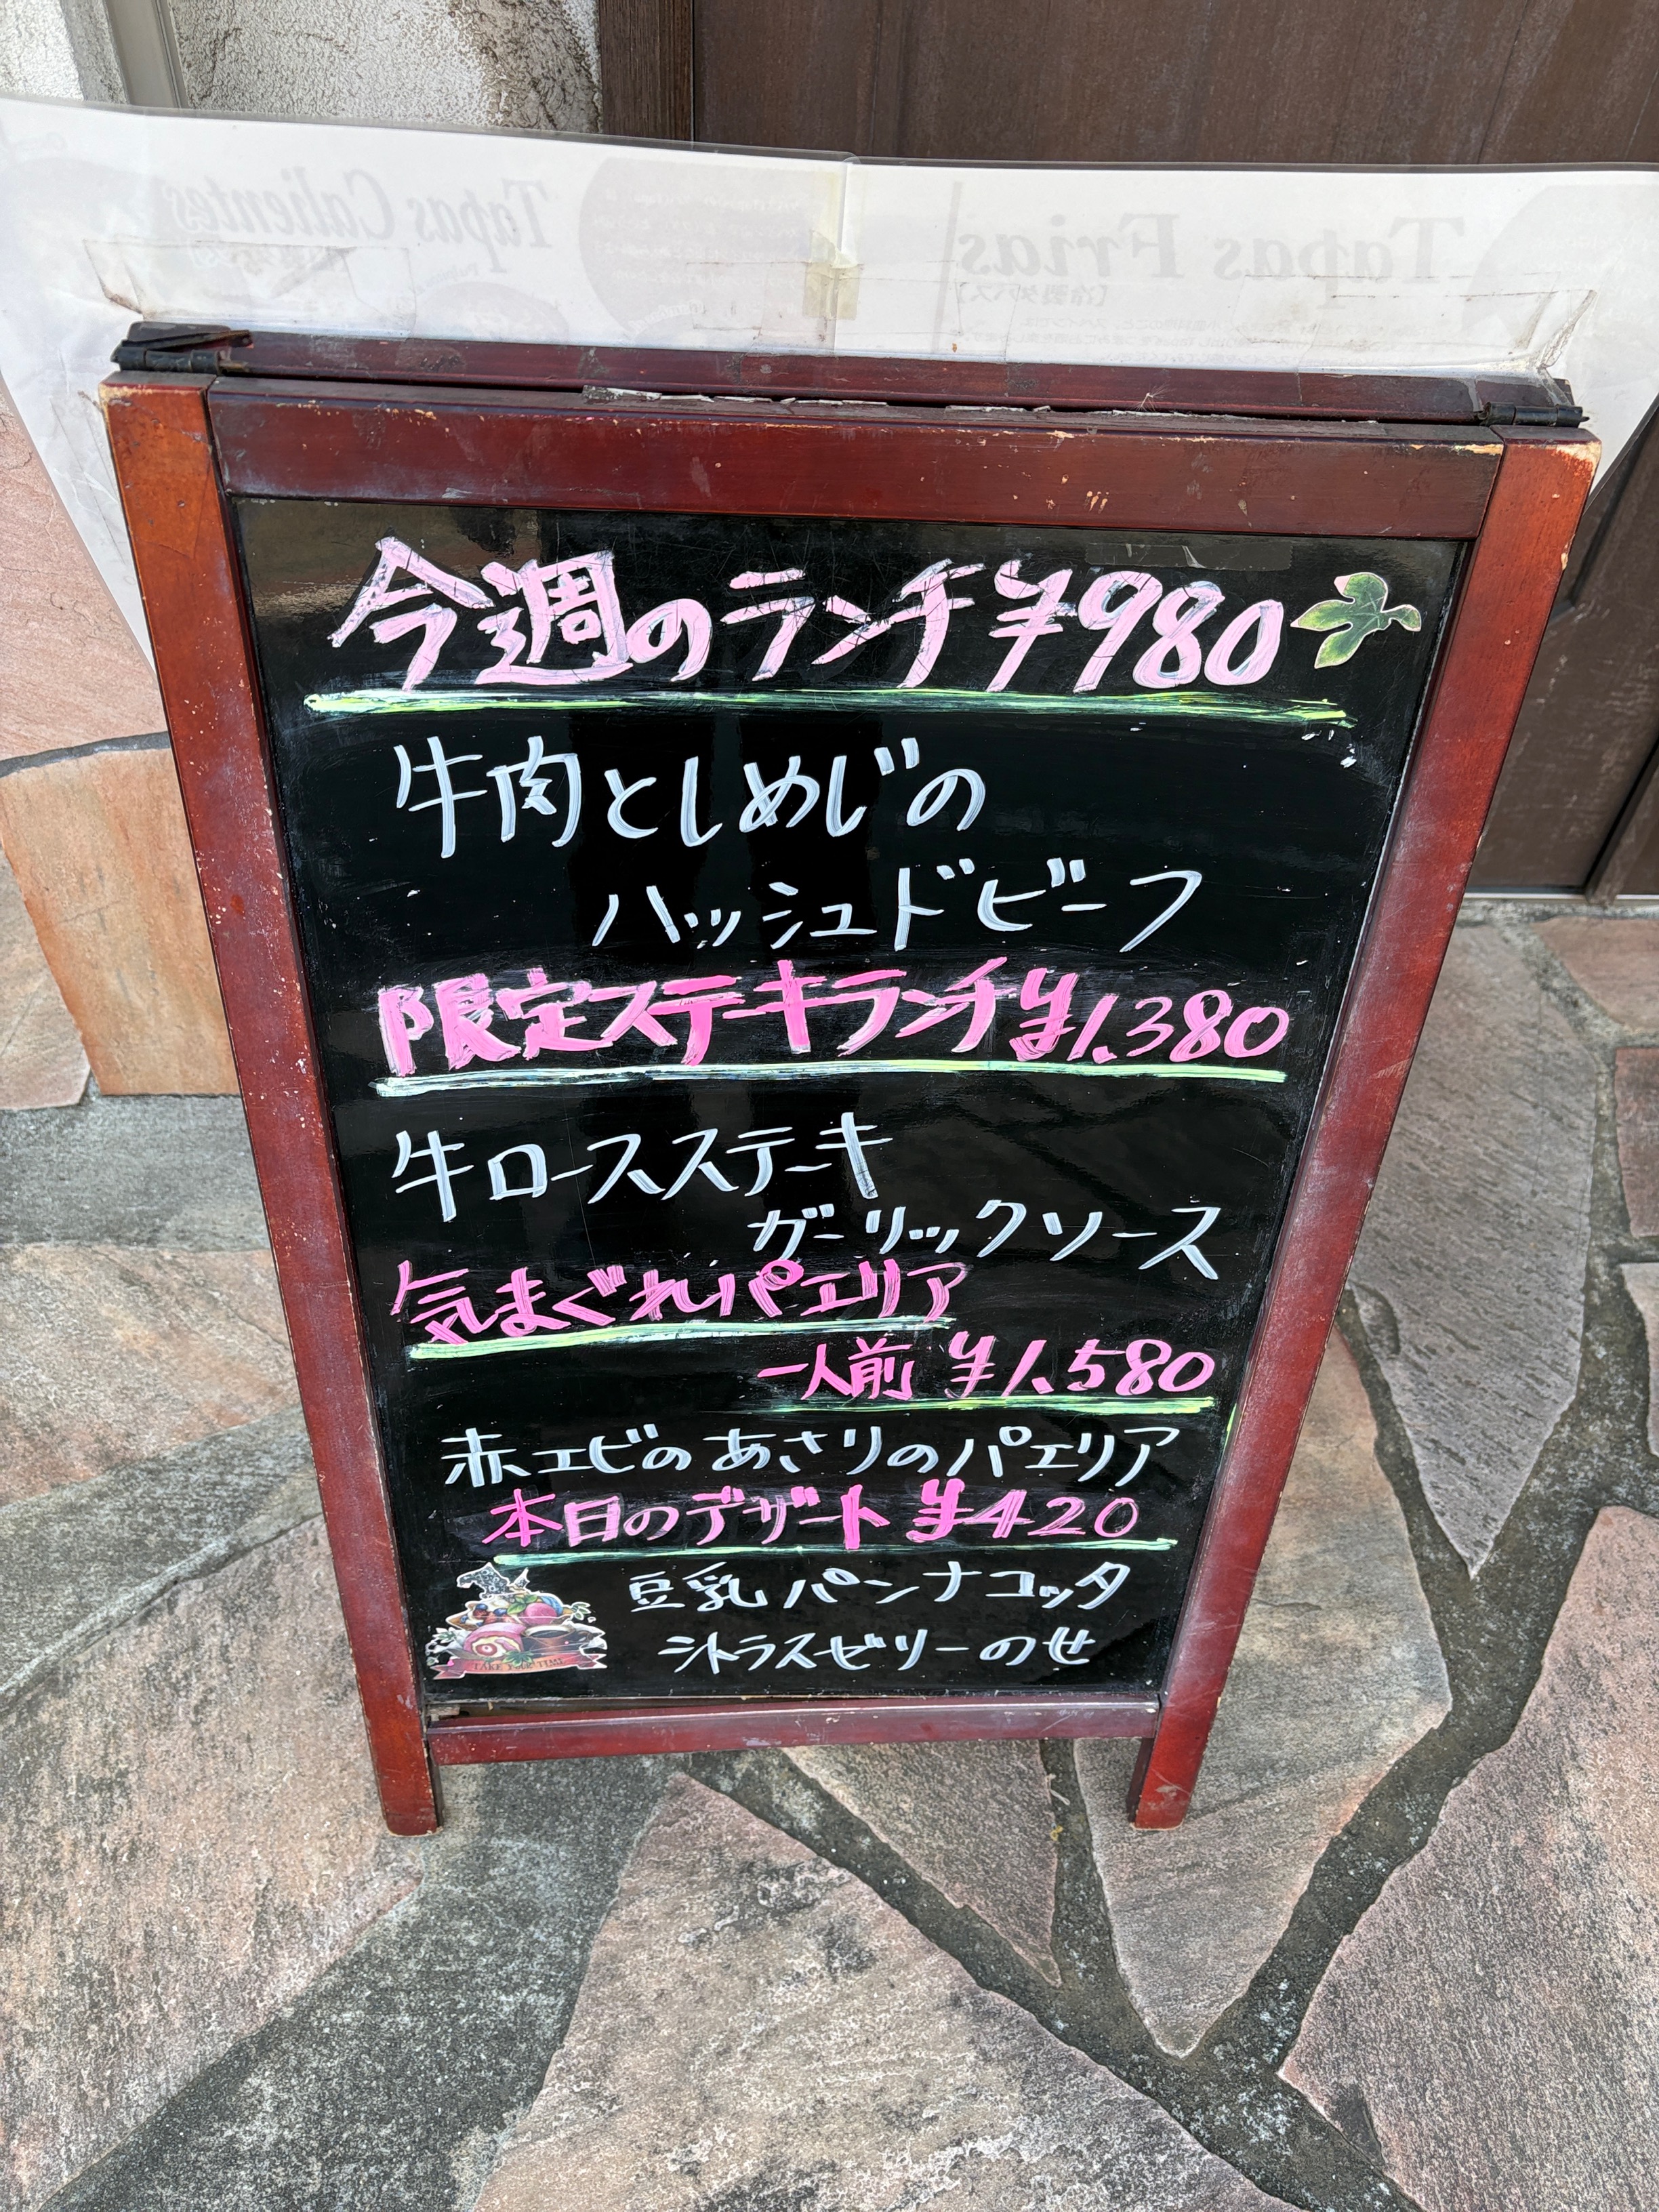 Tapas Calientes
Tapas Frias
【冷製タパス】
今週のランチ¥980
牛肉としめじの
ハッシュドビーフ
限定ステーキランチ¥1,380
牛ロースステーキ
ガーリックソース
気まぐれパエリア
一人前 ¥1,580
赤エビのあさりのパエリア
本日のデザート ¥420
豆乳パンナコッタ
シトラスゼリーのせ
TAKE YOUR TIME